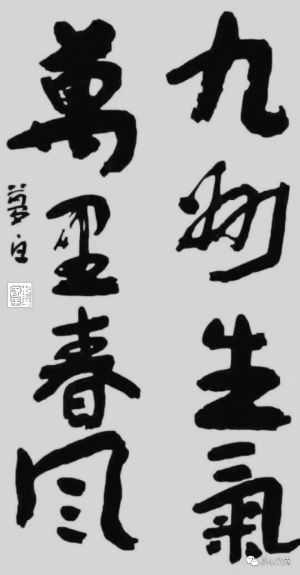 九州生氣
萬里春风